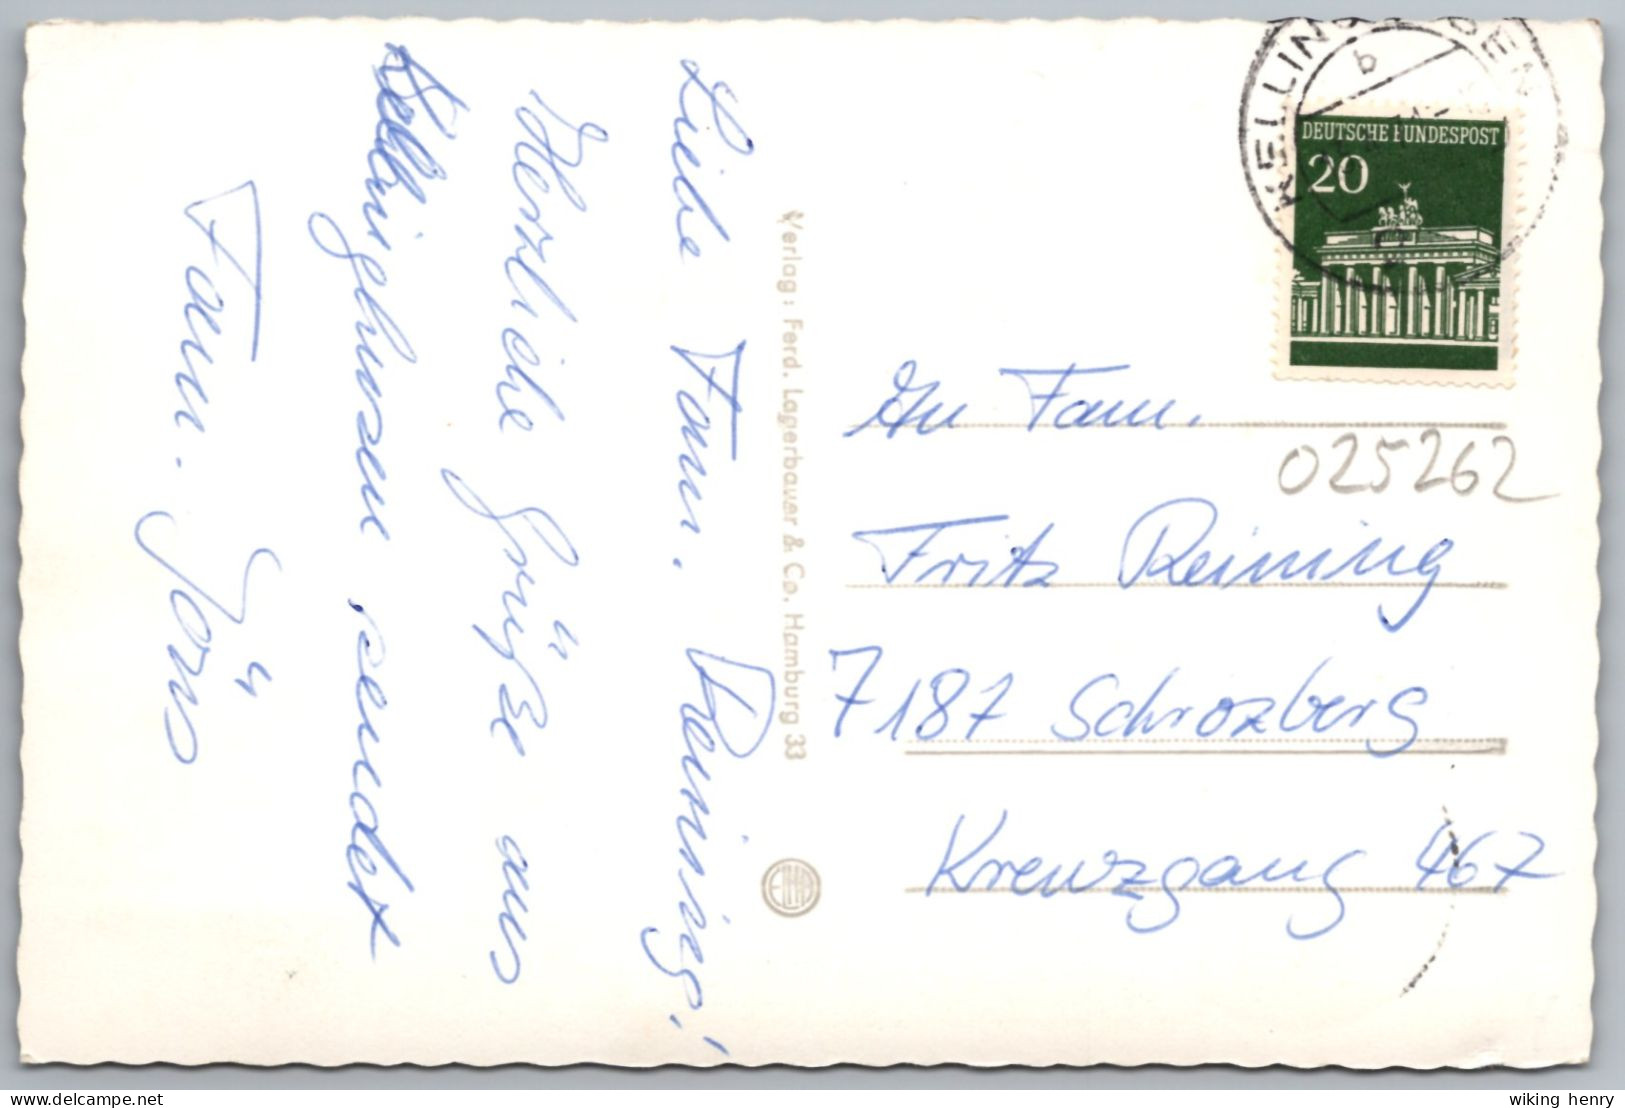 Liebe Fam. Reining!
Herzliche Grüße aus
Kellinghusen sendet
Fam. Jöns
Verlag: Ferd. Lagerbauer & Co. Hamburg 33
b
DEUTSCHE BUNDESPOST
20
An Fam.
025262
Fritz Reining
7187 Schrozberg
Kreuzgang 467
delcampe.net
wiking henry